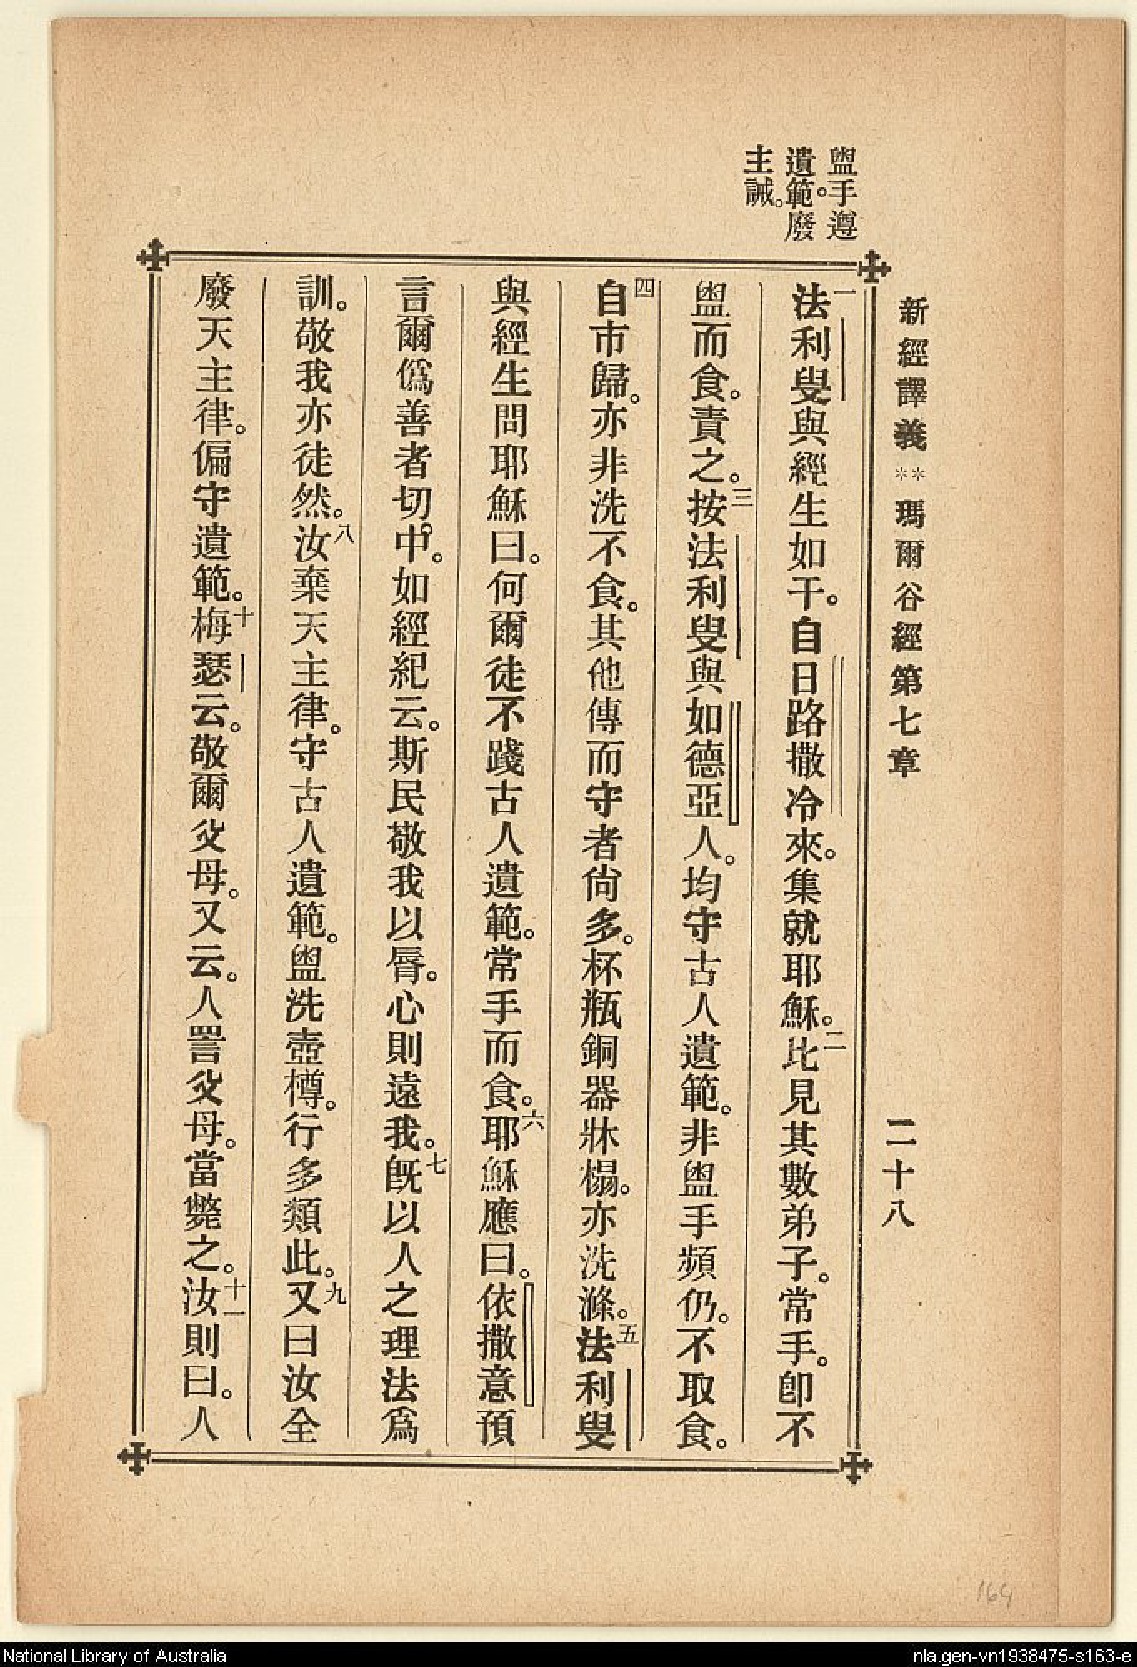 新經譯義 ** 瑪爾谷經第七章 二十八
盥手遵
遺範。廢
主誡。
一法利叟與經生如干。自日路撒冷來。集就耶穌。二比見其數弟子。常手。卽不
盥而食。責之。三按法利叟與如德亞人。均守古人遺範。非盥手頻仍。不取食。
四自市歸。亦非洗不食。其他傳而守者尙多。杯瓶銅器牀榻。亦洗滌。五法利叟
與經生問耶穌曰。何爾徒不踐古人遺範。常手而食。六耶穌應曰。依撒意預
言爾僞善者切中。如經紀云。斯民敬我以脣。心則遠我。七旣以人之理法爲
訓。敬我亦徒然。八汝棄天主律。守古人遺範。盥洗壺樽。行多類此。九又曰汝全
廢天主律。偏守遺範。十梅瑟云。敬爾父母。又云。人詈父母。當斃之。十一汝則曰。人
164
National Library of Australia
nla.gen-vn1938475-s163-e